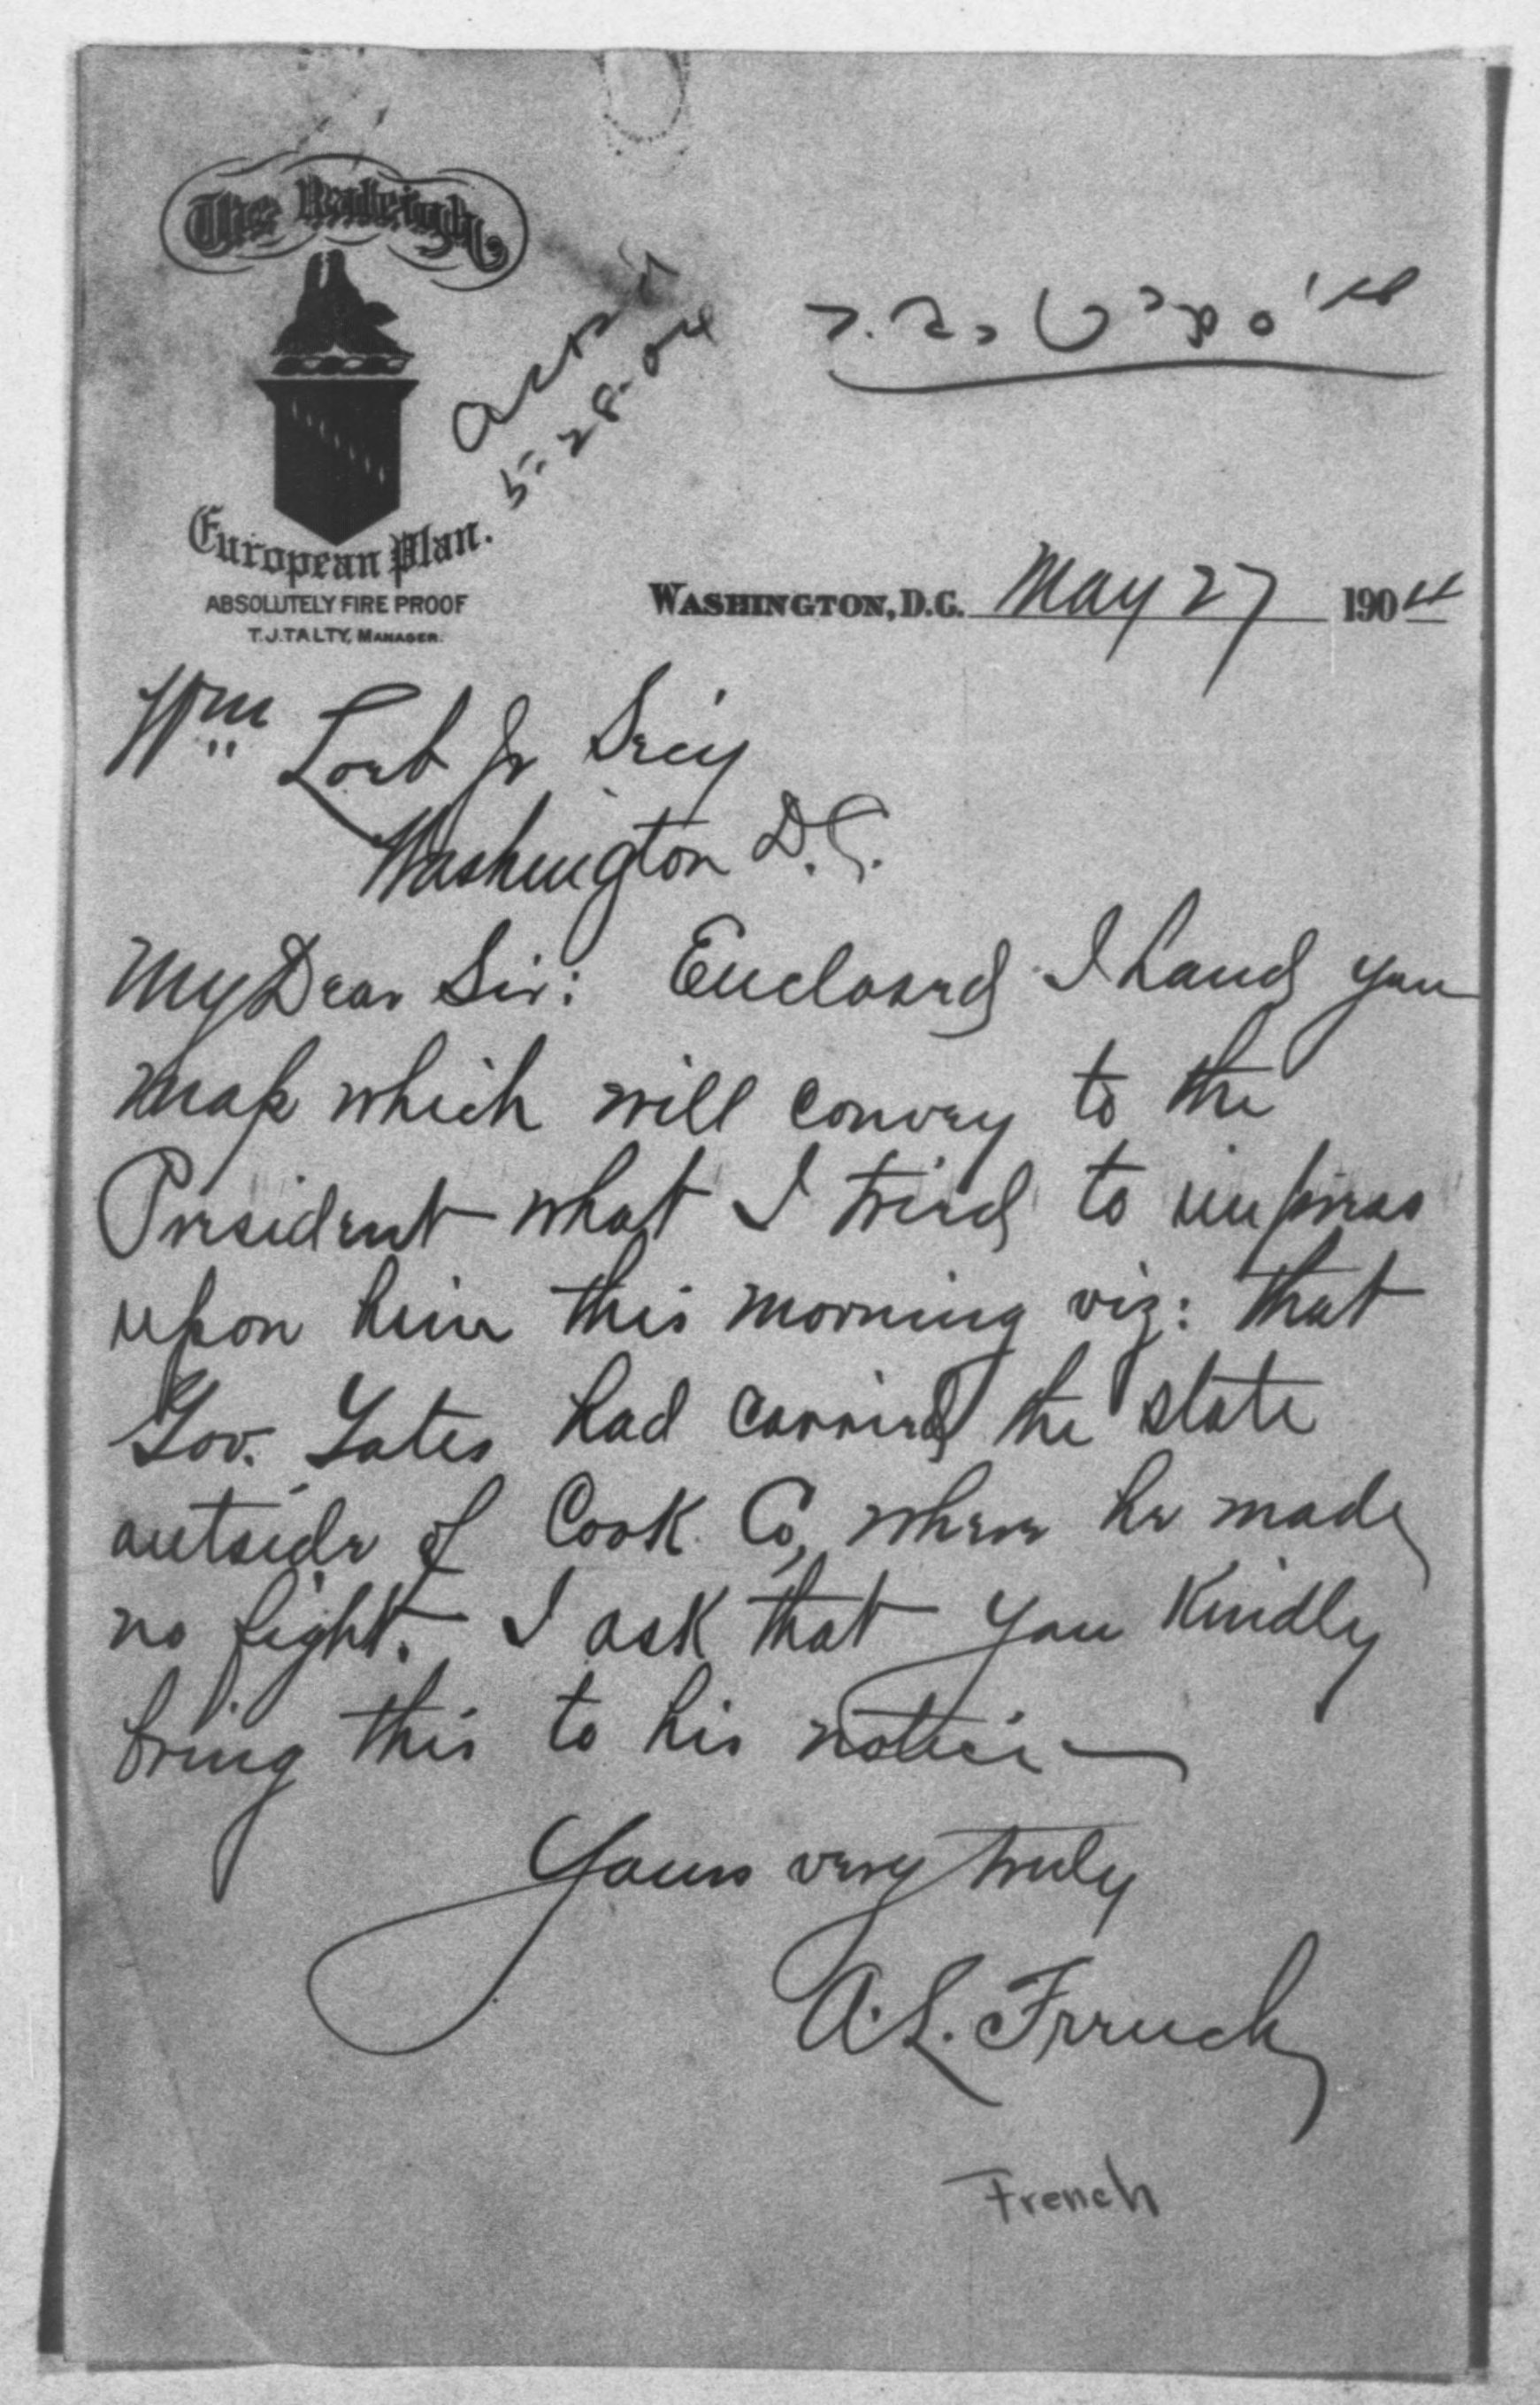 The Raleigh,
European Plan.
ABSOLUTELY FIRE PROOF
T.J. TALTY, MANAGER.
5-28-04
WASHINGTON, D.C. May 27 1904
Wm Loeb Jr Secy
Washington D.C.
My Dear Sir: Enclosed I hand you
map which will convey to the
President what I tried to impress
upon him this morning viz: that
Gov. Yates had carried the state
outside of Cook Co, where he made
no fight. I ask that you kindly
bring this to his notice—
Yours very truly
A.L. French
French